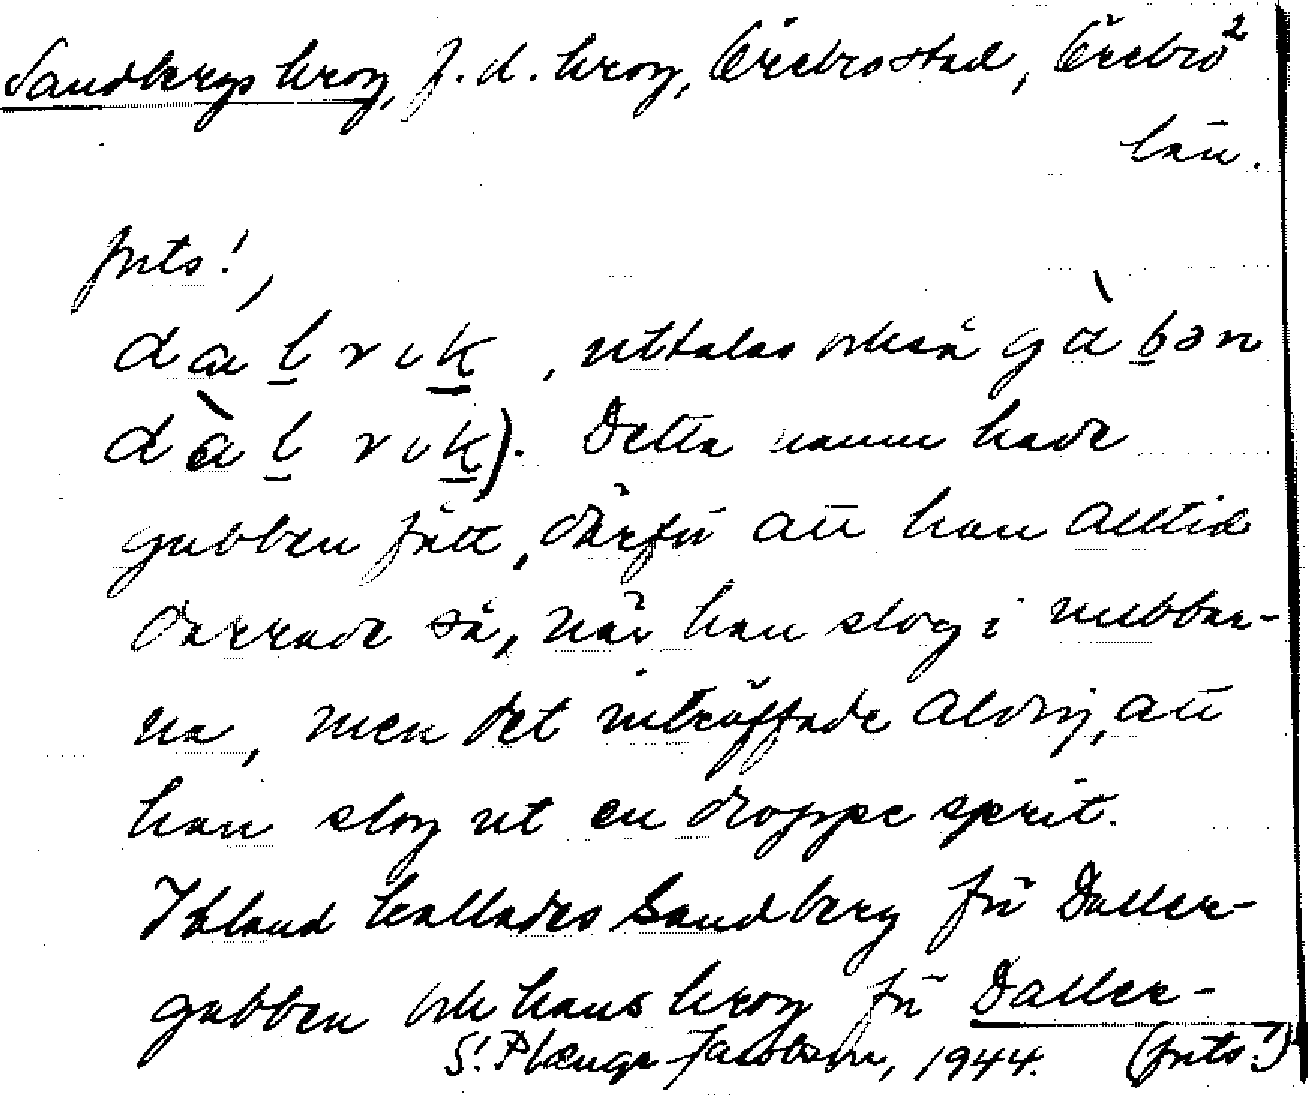 Sandbergs krog, f. d. krog, Örebro stad, Örebro 2
län.
forts!,
dalrik, uttalas också gàbən
dàlrik). Detta namn hade
gubben fått, därför att han alltid
darrade så, när han slog i nubbar-
na, men det inträffade aldrig, att
han slog ut en droppe sprit.
Ibland kallades Sandberg för Daller-
gubben och hans krog för Daller-
S. Plænge Jacobson, 1944. (forts!)